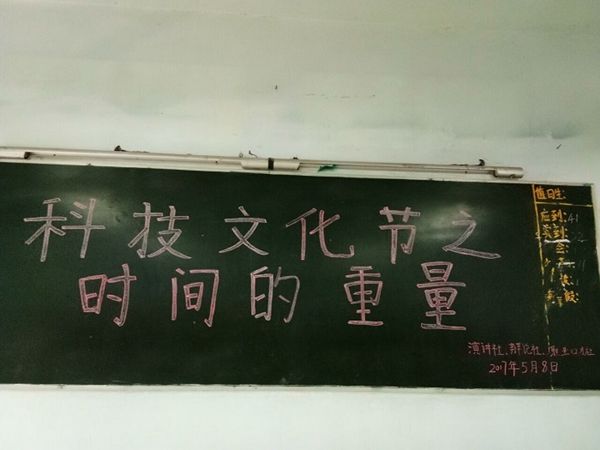 科技文化节之
时间的重量
值日生:
应到:41
实到:
演讲社、辩论社、
2017年5月8日